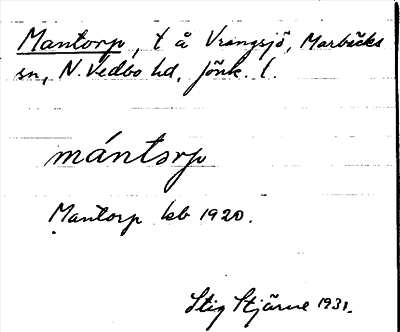 Mantorp, t å Vrangsjö, Marbäcks
sn, N. Vedbo hd, Jönk. l.
mántorp
Mantorp kb 1920.
Stig Stjärne 1931.